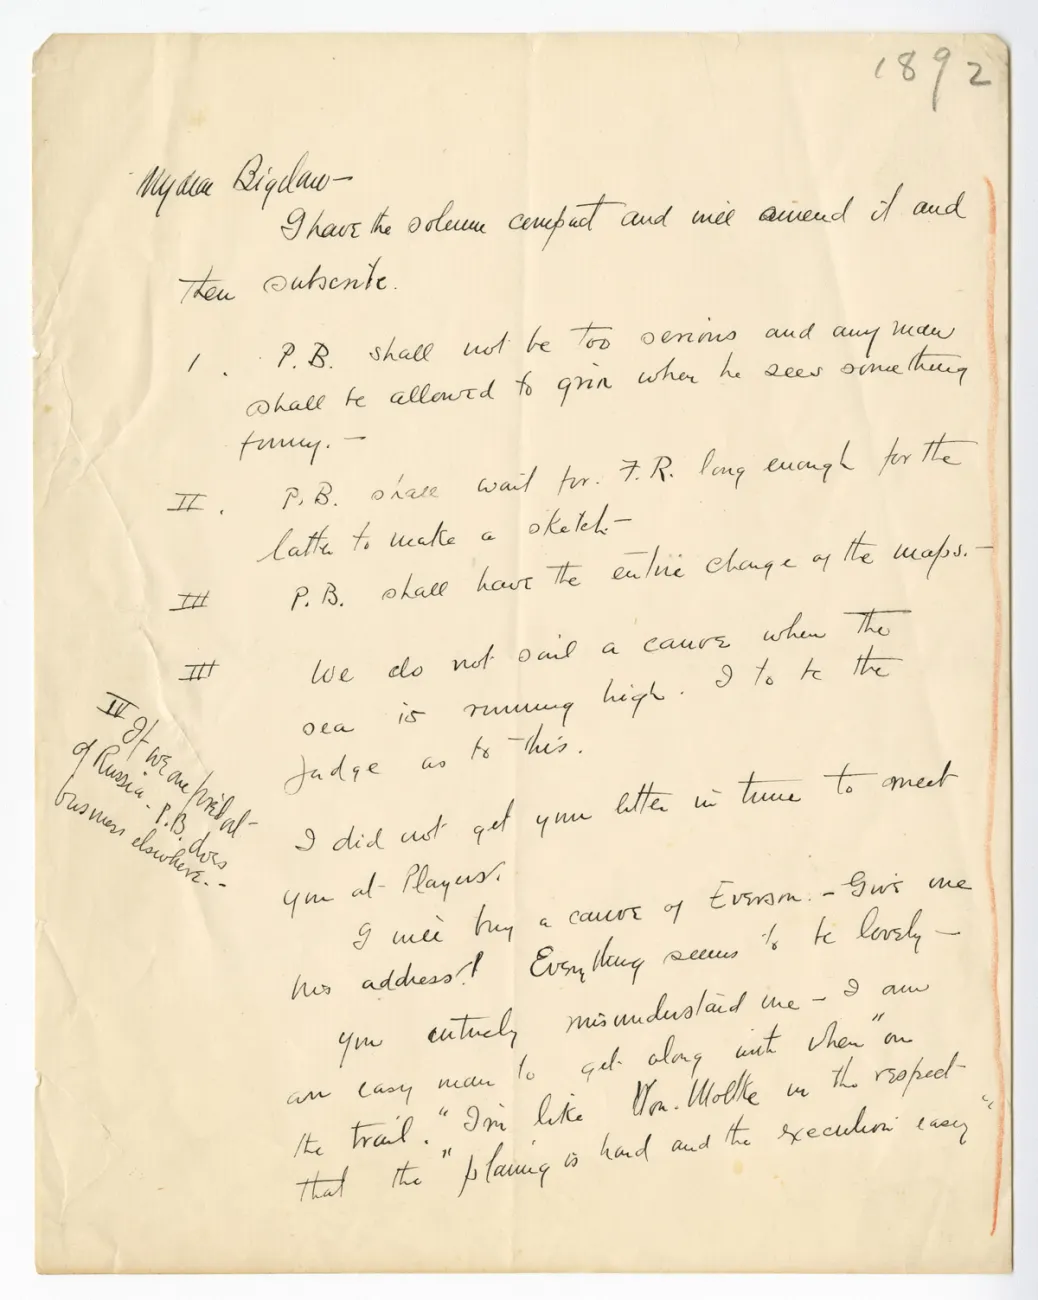 1892
My dear Bigelow—
I have the solemn compact and will amend it and
then subscribe.
I. P.B. shall not be too serious and any man
shall be allowed to grin when he sees something
funny.—
II. P.B. shall wait for F.R. long enough for the
latter to make a sketch—
III P.B. shall have the entire charge of the maps.—
III We do not sail a canoe when the
sea is running high. I to be the
judge as to this.
IV If we are put out
of Russia - P.B. does
business elsewhere.-
I did not get your letter in time to meet
you at Players.
I will buy a canoe of Everson.- Give me
his address! Everything seems to be lovely—
You entirely misunderstand me - I am
an easy man to get along with when "on
the trail." I'm like Von. Moltke in the respect
that the "planing is hard and the execution easy"